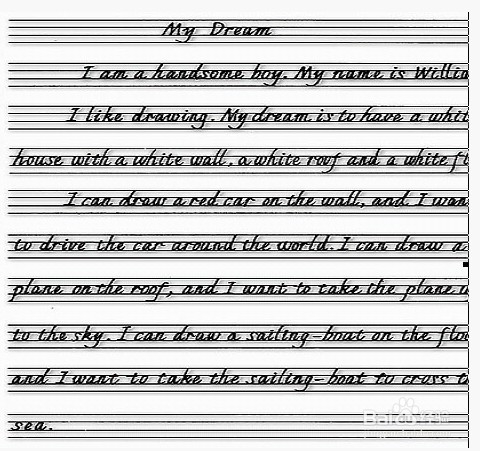 My Dream
I am a handsome boy. My name is Willia
I like drawing. My dream is to have a whit
house with a white wall, a white roof and a white fl
I can draw a red car on the wall, and I wan
to drive the car around the world. I can draw a
plane on the roof, and I want to take the plane
to the sky. I can draw a sailing-boat on the floo
and I want to take the sailing-boat to cross t
sea.
Baidu经验